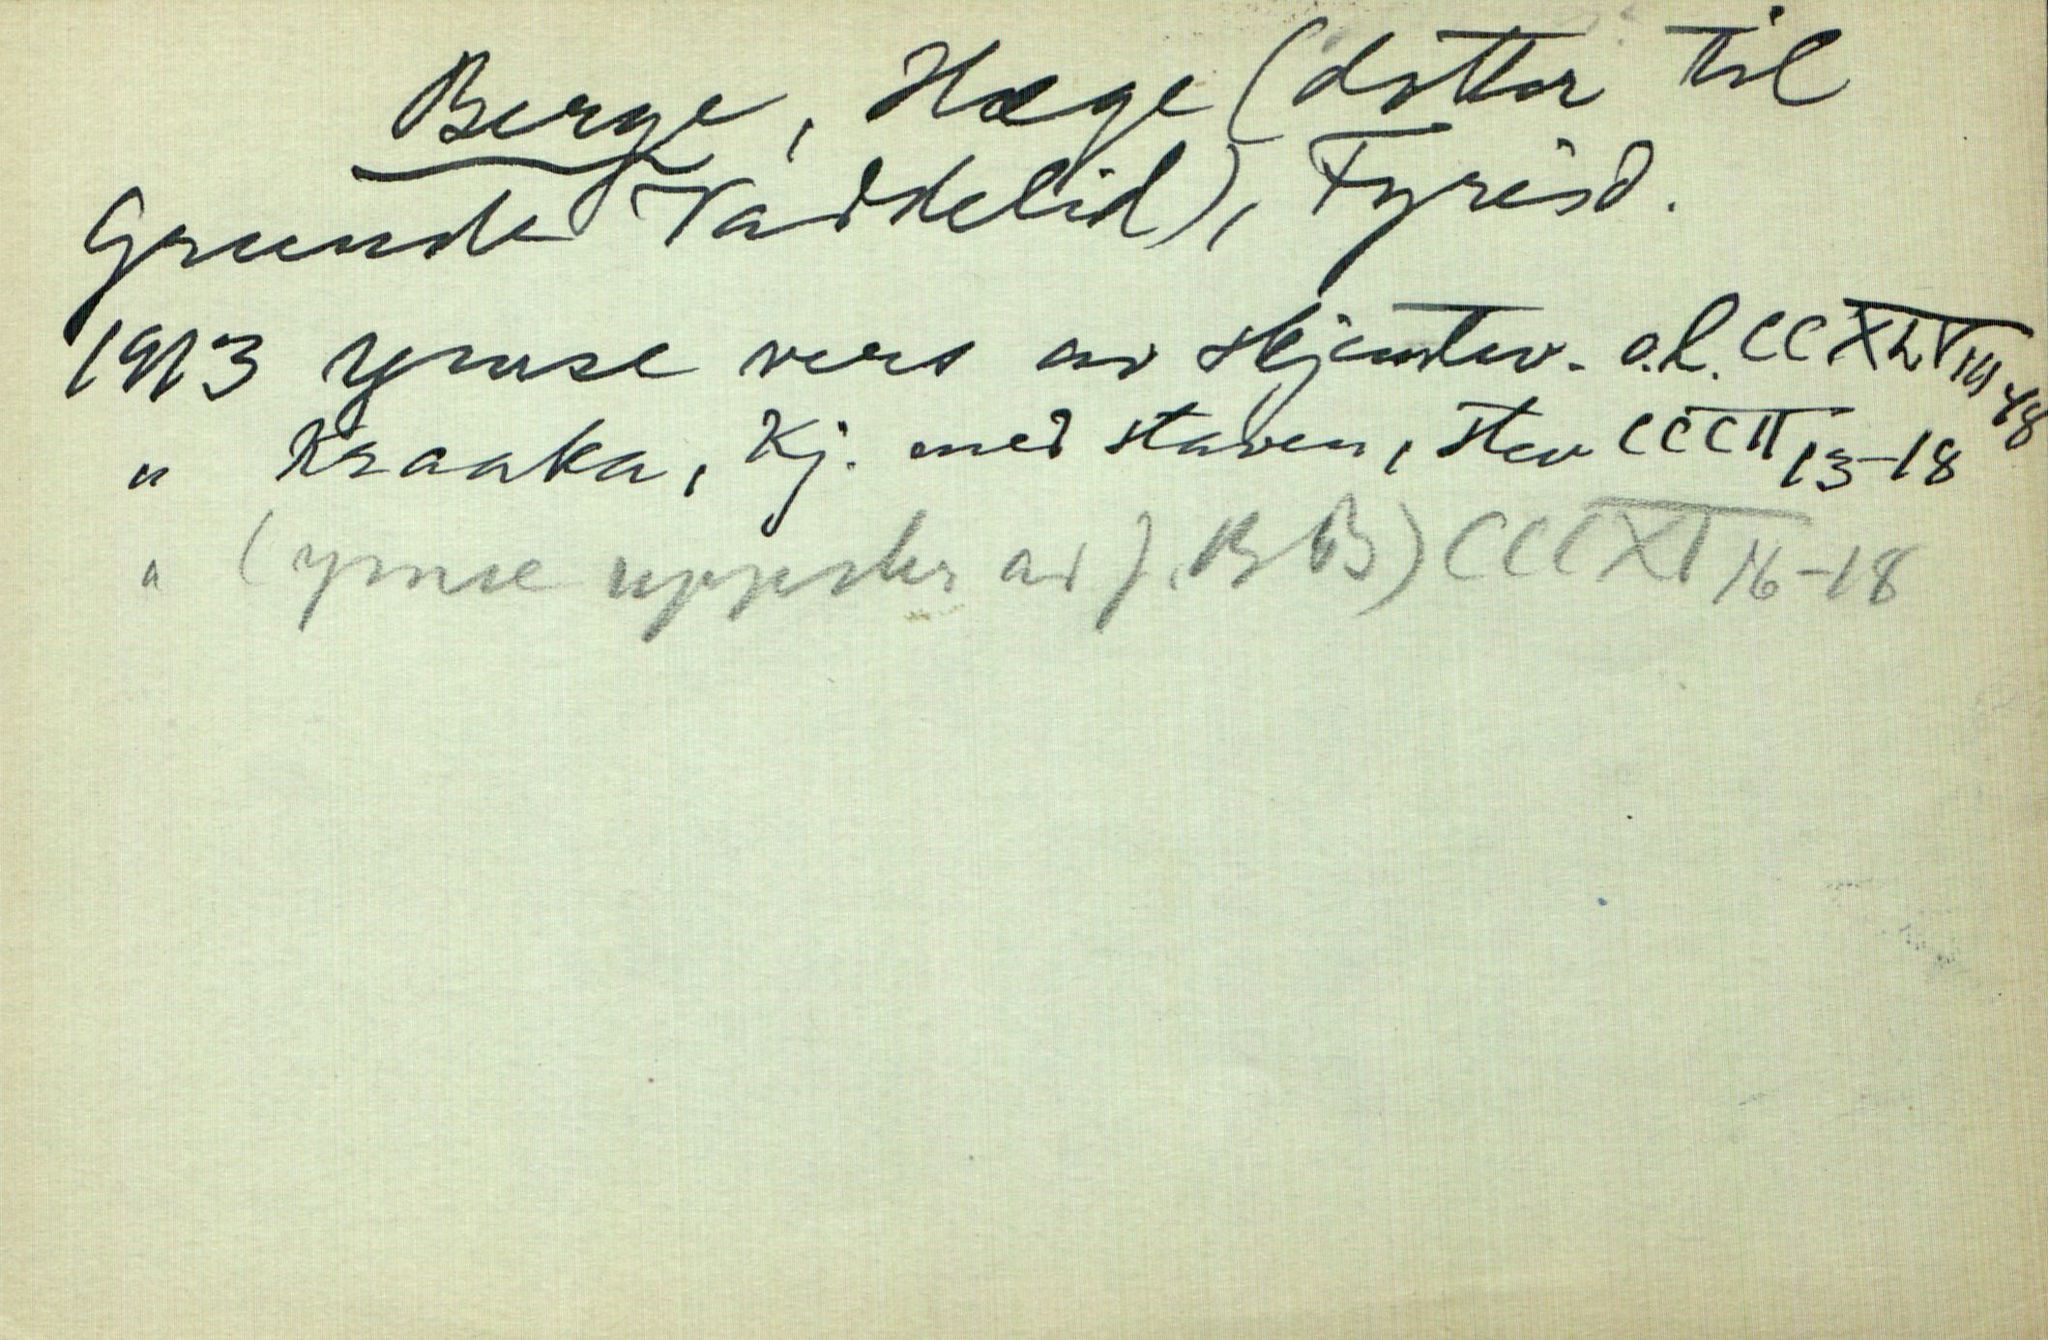 Berge, Hæge (dotter til
Grunde Vaddelid), Fyrisd.
1913 ymse vers av skjemtev. o.l. CCXLV 48
" Kraaka, Kj. med staven, stev CCCII 13-18
" (ymse uppskr av J. B B) CCCXI 16-18